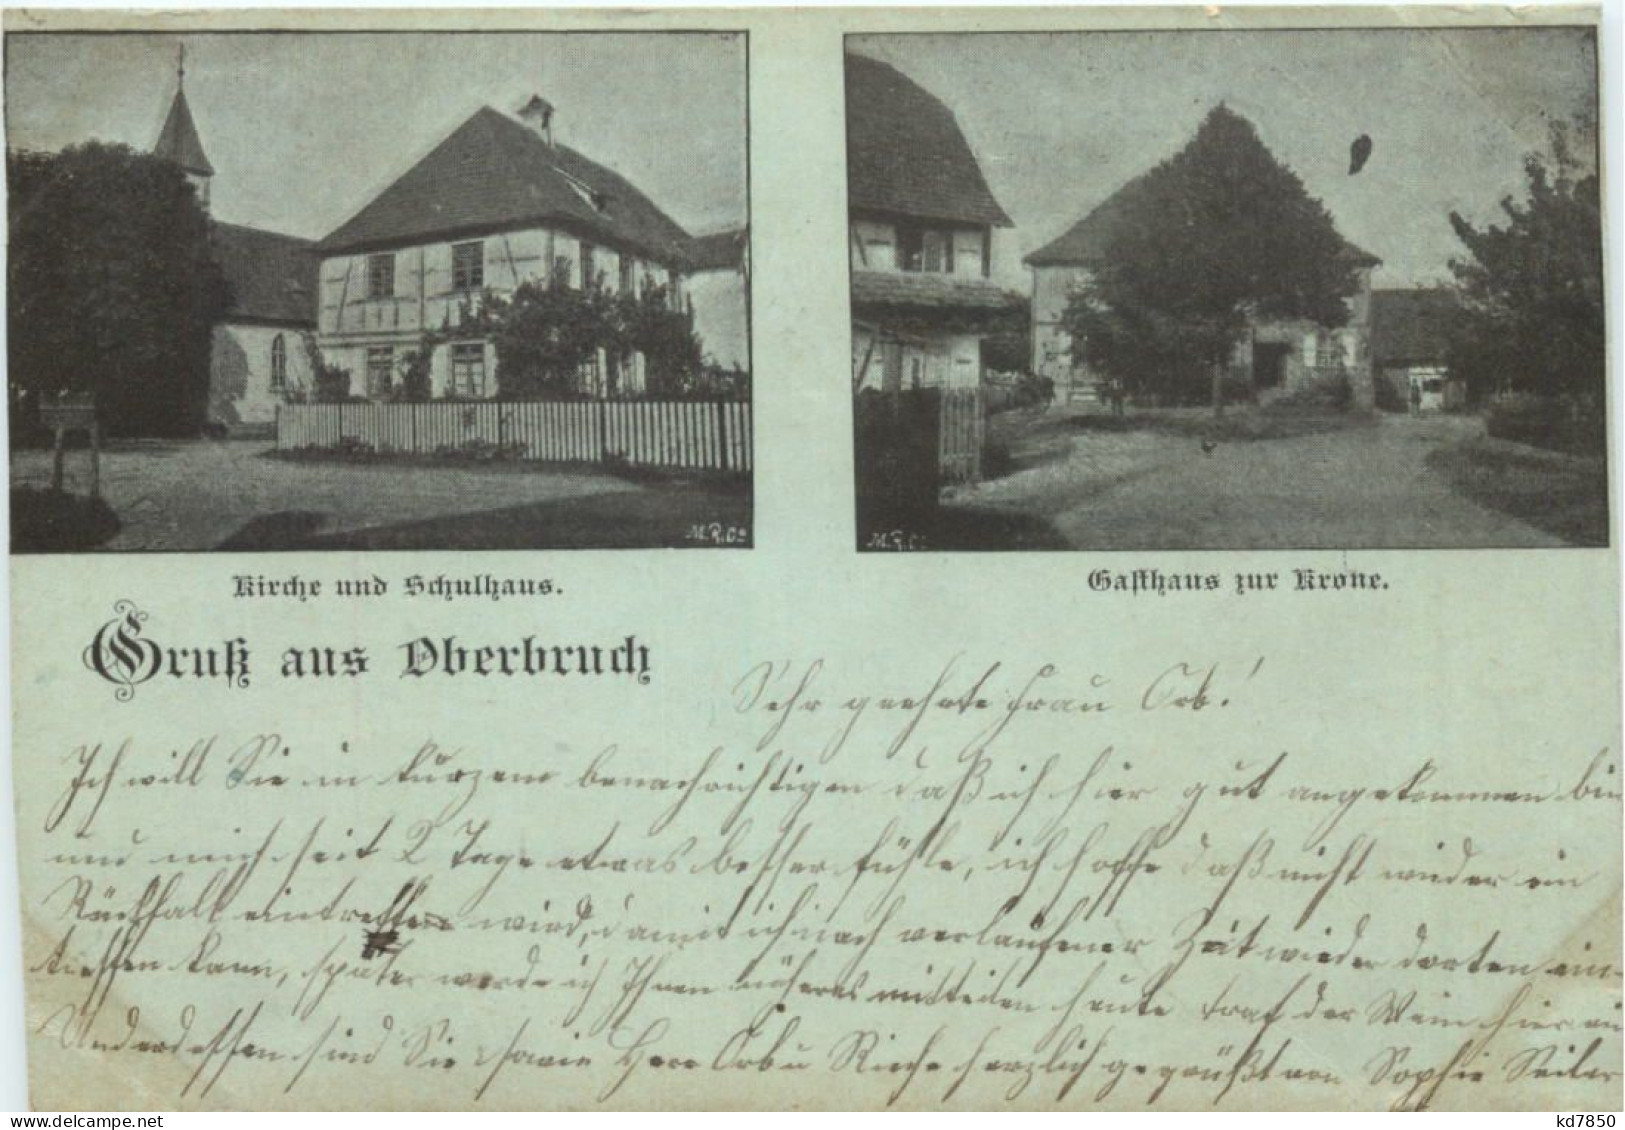 M.R.Co
M.R.Co
Kirche und Schulhaus.
Gasthaus zur Krone.
Gruß aus Oberbruch
Sehr geehrte Frau Orb!
Ich will Sie in kurzem benachrichtigen daß ich hier gut angekommen bin
und mich seit 2 Tage etwas besser fühle, ich hoffe daß nicht wieder ein
Rückfall eintreffen wird, damit ich nach verlaufener Zeit wieder dorten ein-
treffen kann, später werde ich Ihnen näheres mitteilen heute traf der Wein hier ein
Underdessen sind Sie sowie Herr Orb u Rieche herzlich gegrüßt von Sophie Seiler
kd7850